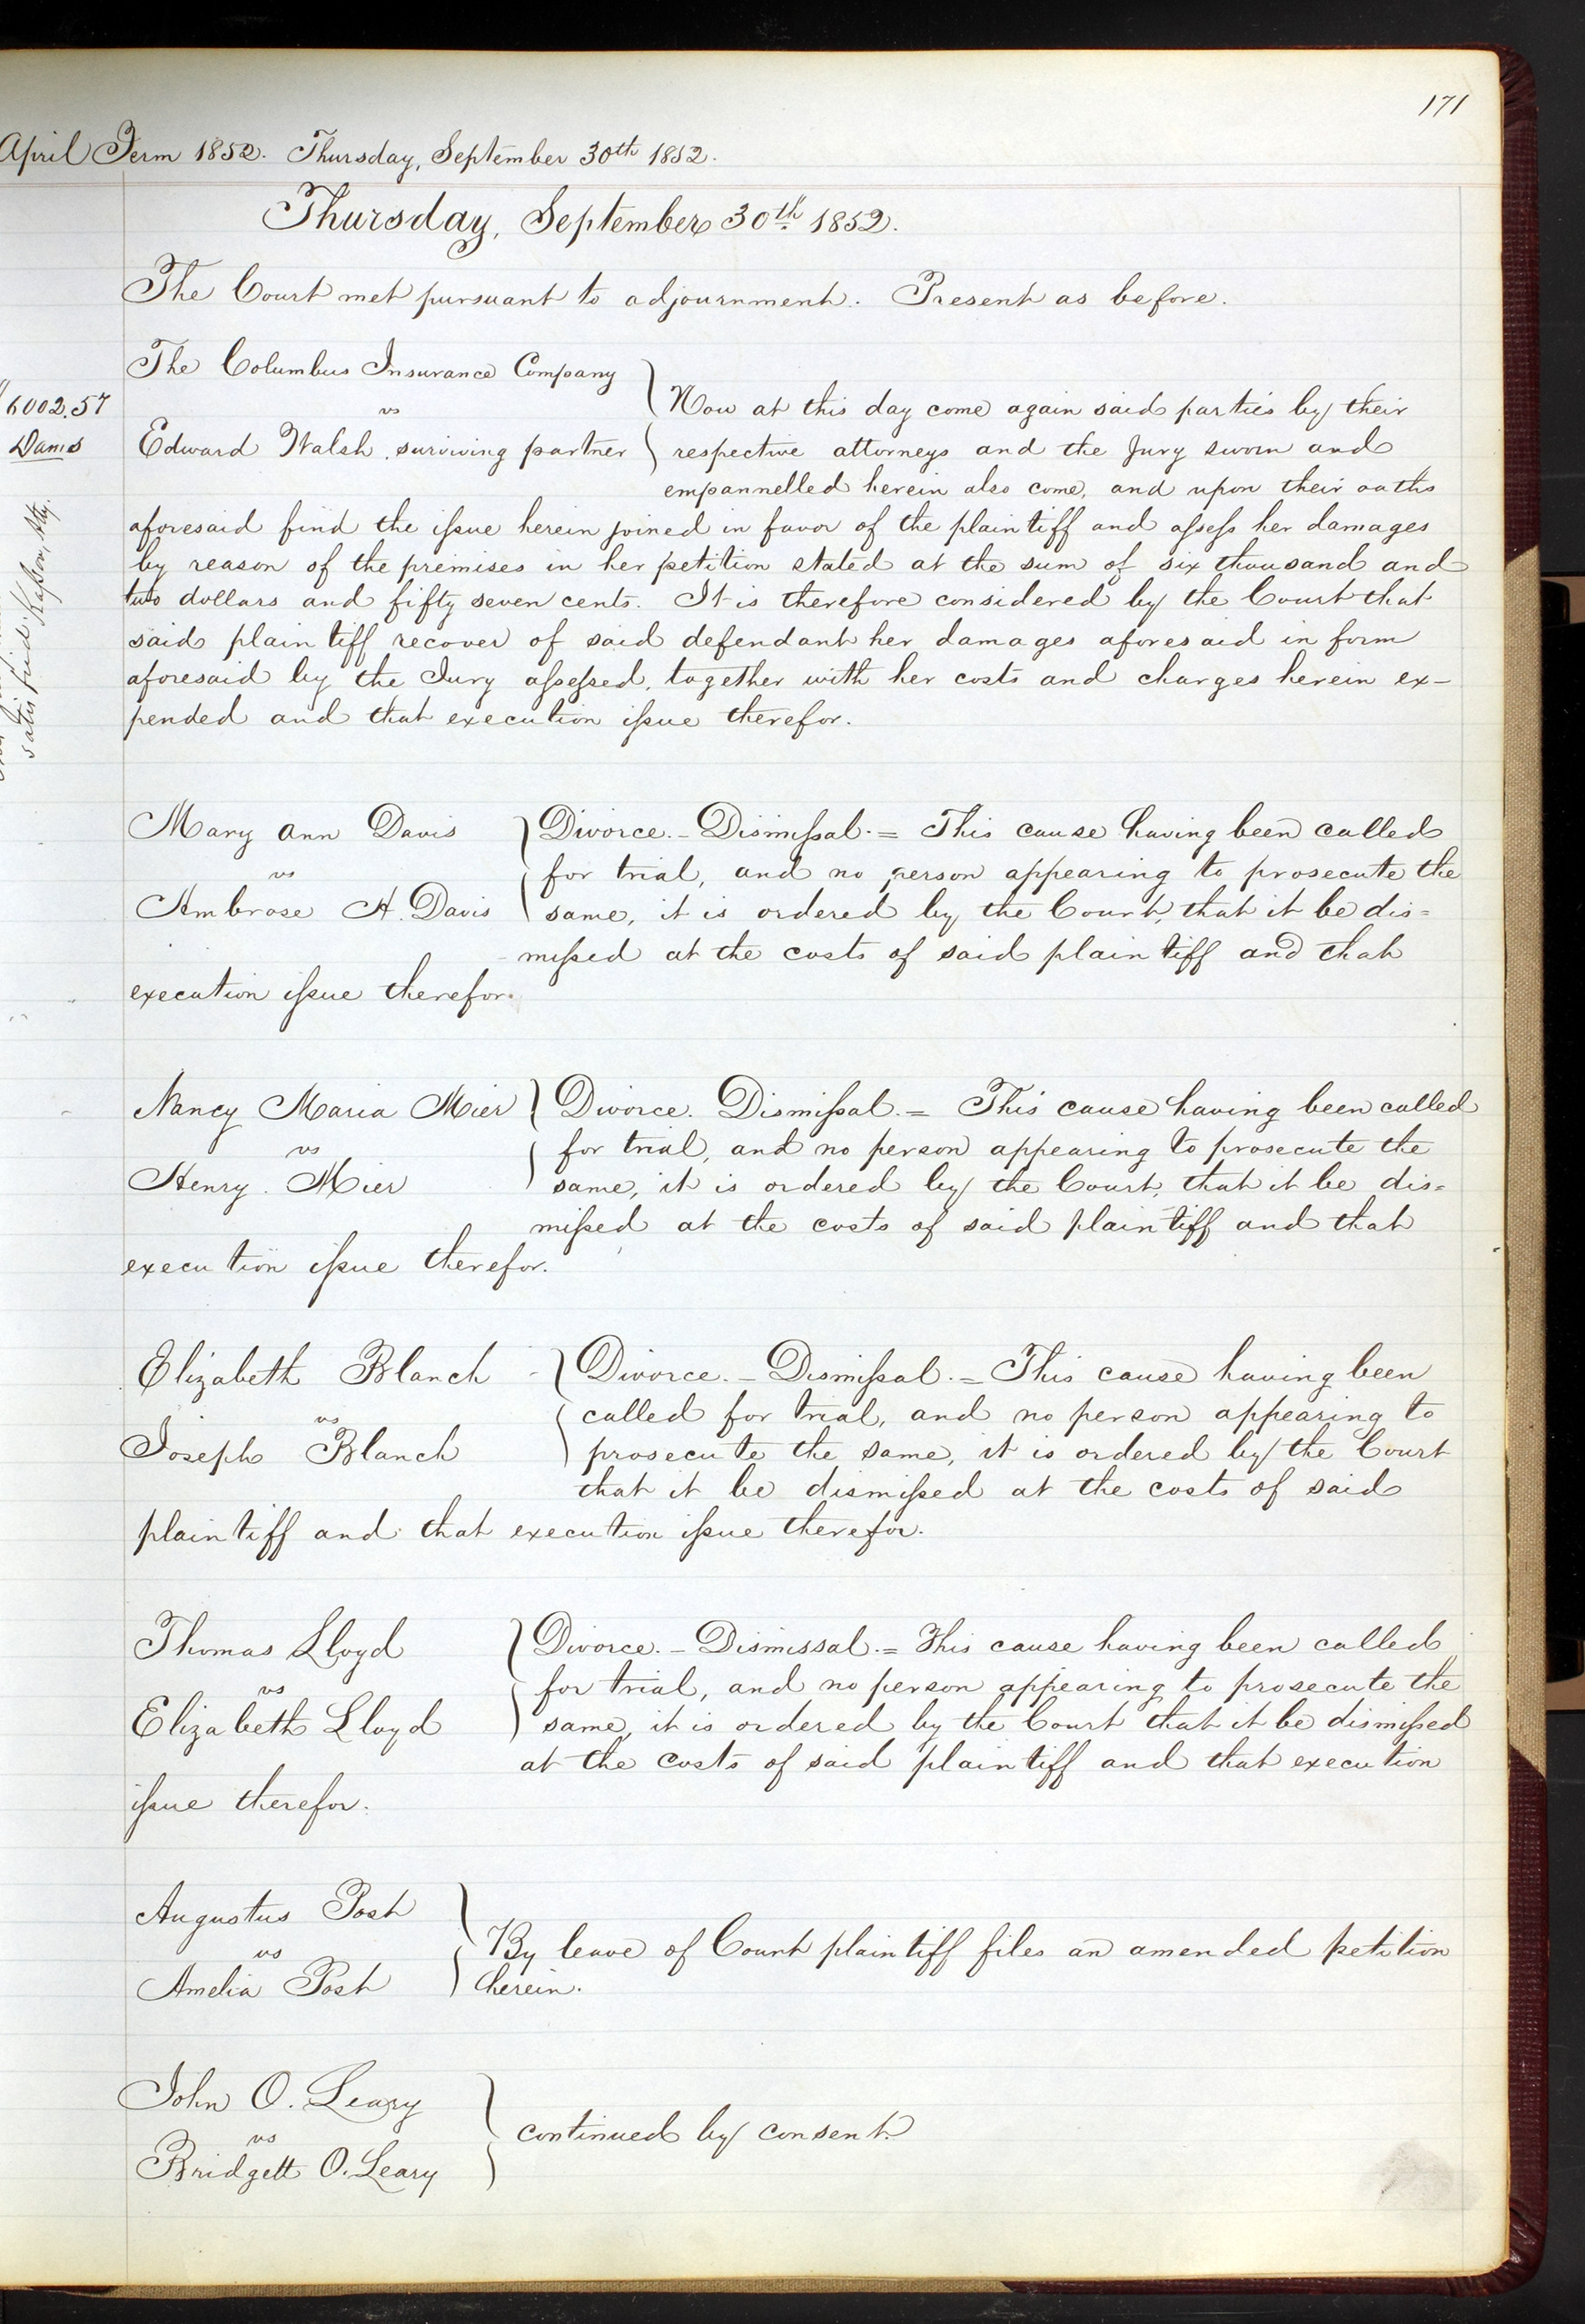 171
April Term 1852. Thursday, September 30th 1852.
Thursday, September 30th 1852.
The Court met pursuant to adjournment. Present as before.
The Columbus Insurance Company
vs
Edward Walsh, surviving partner
6002.57
Dams
Now at this day come again said parties by their
respective attorneys and the Jury sworn and
empannelled herein also come, and upon their oaths
aforesaid find the issue herein joined in favor of the plaintiff and assess her damages
by reason of the premises in her petition stated at the sum of six thousand and
two dollars and fifty seven cents. It is therefore considered by the Court that
said plaintiff recover of said defendant her damages aforesaid in form
aforesaid by the Jury assessed, together with her costs and charges herein ex-
pended and that execution issue therefor.
satisfied.
Mary Ann Davis
vs
Ambrose H. Davis
Divorce. - Dismissal. = This cause having been called
for trial, and no person appearing to prosecute the
same, it is ordered by the Court, that it be dis=
missed at the costs of said plaintiff and that
execution issue therefor.
Nancy Maria Mier
vs
Henry Mier
Divorce. Dismissal. = This cause having been called
for trial, and no person appearing to prosecute the
same, it is ordered by the Court, that it be dis=
missed at the costs of said plaintiff and that
execution issue therefor.
Elizabeth Blanch
vs
Joseph Blanch
Divorce. - Dismissal. = This cause having been
called for trial, and no person appearing to
prosecute the same, it is ordered by the Court
that it be dismissed at the costs of said
plaintiff and that execution issue therefor.
Thomas Lloyd
vs
Elizabeth Lloyd
Divorce. - Dismissal. = This cause having been called
for trial, and no person appearing to prosecute the
same, it is ordered by the Court that it be dismissed
at the costs of said plaintiff and that execution
issue therefor.
Augustus Post
vs
Amelia Post
By leave of Court plaintiff files an amended petition
herein.
John O. Leary
vs
Bridgett O. Leary
continued by consent.